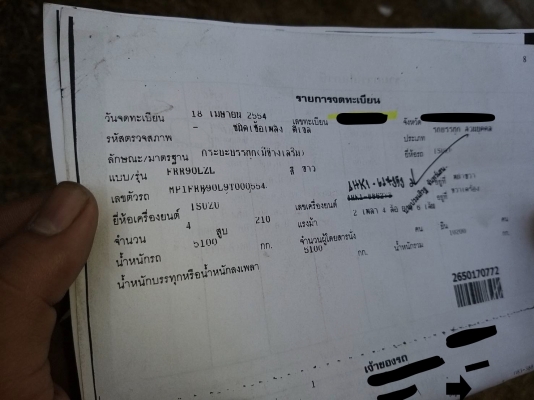 8
รายการจดทะเบียน
วันจดทะเบียน 18 เมษายน 2554 เลขทะเบียน จังหวัด
รหัสตรวจสภาพ - ชนิดเชื้อเพลิง ดีเซล ประเภท รถบรรทุก ส่วนบุคคล
ลักษณะ/มาตรฐาน กระบะบรรทุก(มีข้างเสริม) ยี่ห้อรถ
แบบ/รุ่น FRR90L2L สี ขาว
เลขตัวรถ MP1FRR90L9T000554
ยี่ห้อเครื่องยนต์ ISUZU เลขเครื่องยนต์
จำนวน 4 สูบ 210 แรงม้า 2 เพลา 4 ล้อ ยาง 6 เส้น
น้ำหนักรถ 5100 กก. จำนวนผู้โดยสารนั่ง คน ยืน คน
น้ำหนักบรรทุกหรือน้ำหนักลงเพลา 5100 กก. น้ำหนักรวม กก.
2650170772
1 เจ้าของรถ